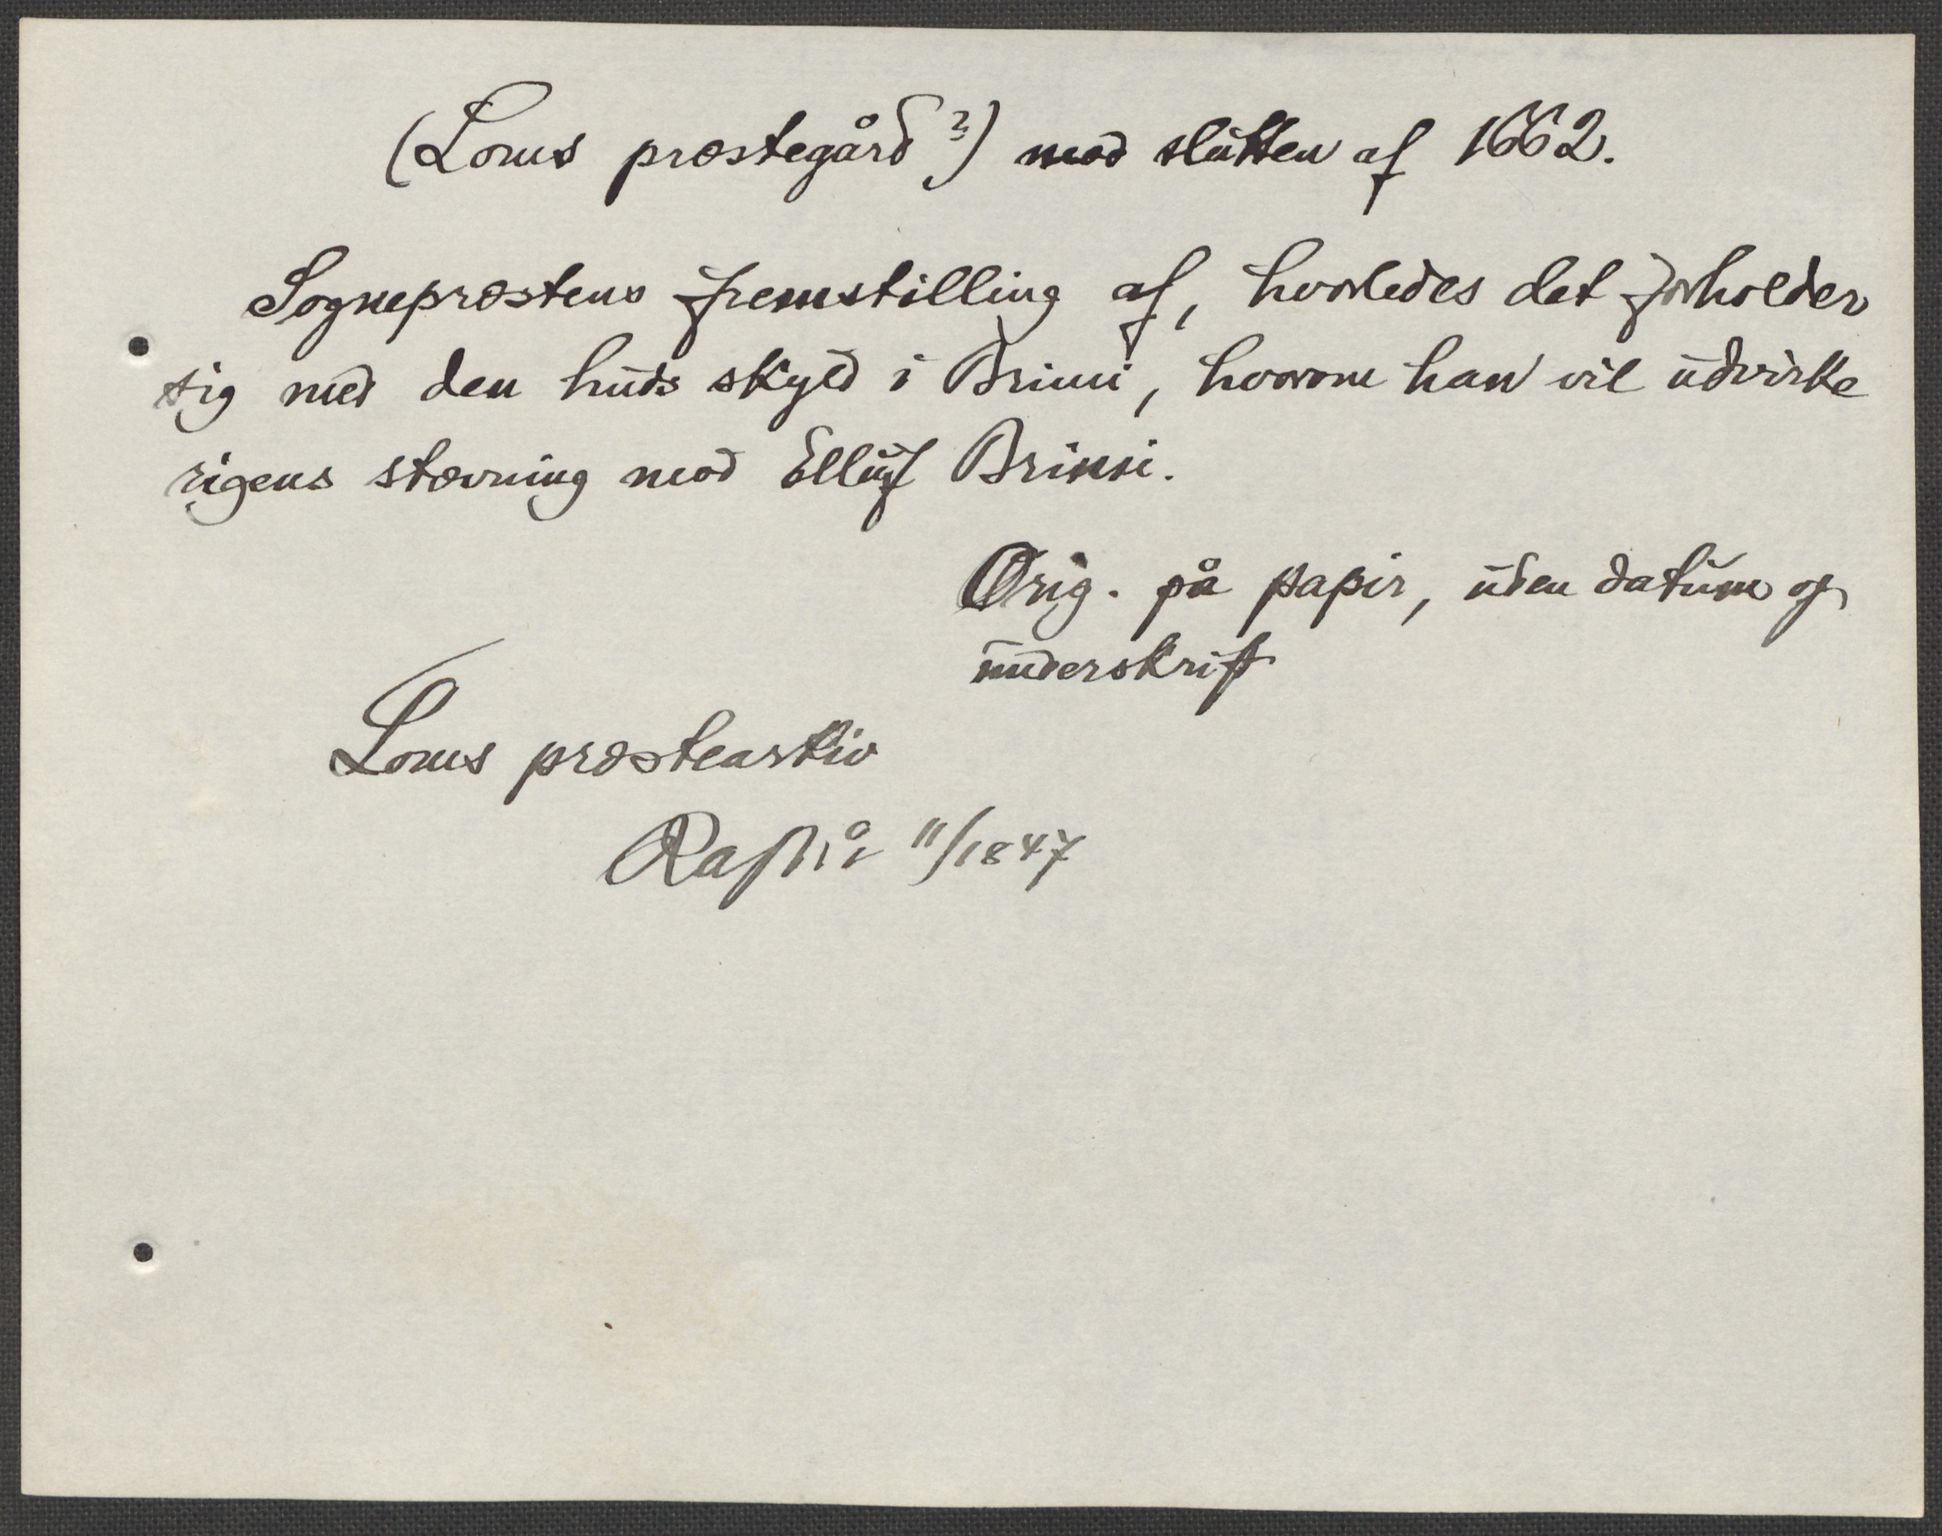 (Loms præstegård?) mod slutten af 1662.
Sognepræstens fremstilling af, hvorledes det forholder
sig med den huds skyld i Brimi, hvorom han vil udvirke
rigens stævning mod Elluf Brimi.
Orig. på papir, uden datum og
underskrift
Loms præstearkiv
11/1847